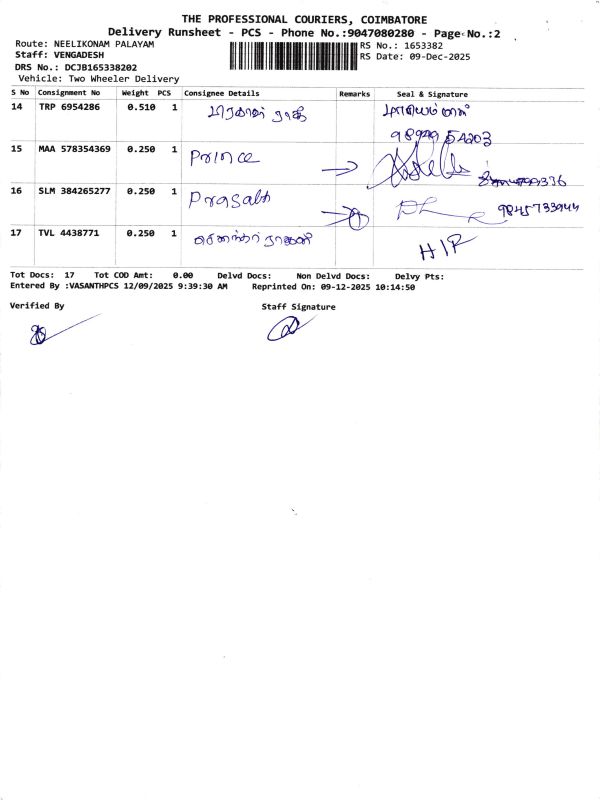 THE PROFESSIONAL COURIERS, COIMBATORE
Delivery Runsheet - PCS - Phone No.:9047080280 - Page No.:2
Route: NEELIKONAM PALAYAM
RS No.: 1653382
Staff: VENGADESH
RS Date: 09-Dec-2025
DRS No.: DCJB165338202
Vehicle: Two Wheeler Delivery
S No Consignment No Weight PCS Consignee Details Remarks Seal & Signature
14 TRP 6954286 0.510 1
15 MAA 578354369 0.250 1 Prince
16 SLM 384265277 0.250 1 Prasath 9845733944
17 TVL 4438771 0.250 1 H/R
Tot Docs: 17 Tot COD Amt: 0.00 Delvd Docs: Non Delvd Docs: Delvy Pts:
Entered By :VASANTHPCS 12/09/2025 9:39:30 AM Reprinted On: 09-12-2025 10:14:50
Verified By Staff Signature